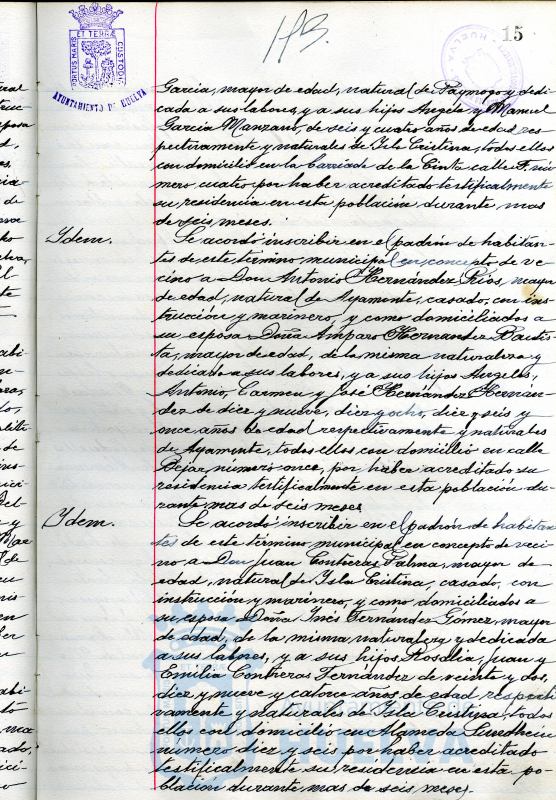 PORTUS MARIS ET TERRÆ CUSTODIA
AYUNTAMIENTO DE HUELVA
113.
15
García, mayor de edad, natural de Paymogo y dedi-
cada a sus labores, y a sus hijos Angela y Manuel
García Manzano, de seis y cuatro años de edad res-
pectivamente y naturales de Isla Cristina, todos ellos
con domicilio en la Barriada de la Cinta calle F. nú-
mero cuatro por haber acreditado testificalmente
su residencia en esta población durante mas
de seis meses.
Ydem.
Se acordó inscribir en el padrón de habitan-
tes de este término municipal en concepto de ve-
cino a Don Antonio Hernández Rios, mayor
de edad, natural de Ayamonte, casado, con ins-
trucción y marinero, y como domiciliados a
su esposa Doña Amparo Hernandez Bautis-
ta, mayor de edad, de la misma naturaleza y
dedicada a sus labores, y a sus hijos Angeles,
Antonio, Carmen y José Hernández Hernan-
dez de diez y nueve, diez y ocho, diez y seis y
once años de edad respectivamente y naturales
de Ayamonte, todos ellos con domicilio en calle
Bejar, numero once, por haber acreditado su
residencia testificalmente en esta población du-
rante mas de seis meses
Ydem.
Se acordó inscribir en el padrón de habitan-
tes de este término municipal en concepto de veci-
no a Don Juan Contreras Palma, mayor de
edad, natural de Isla Cistina, casado, con
instrucción y marinero, y como domiciliados a
su esposa Doña Inés Fernandez Gómez, mayor
de edad, de la misma naturaleza y dedicada
a sus labores, y a sus hijos Rosalia, Juan y
Emilia Contreras Fernández de veinte y dos,
diez y nueve y catorce años de edad respecti-
vamente y naturales de Isla Cristina, todos
ellos con domicilio en Alameda Sundheim
número diez y seis por haber acreditado
testificalmente su residencia en esta po-
blación durante mas de seis meses.